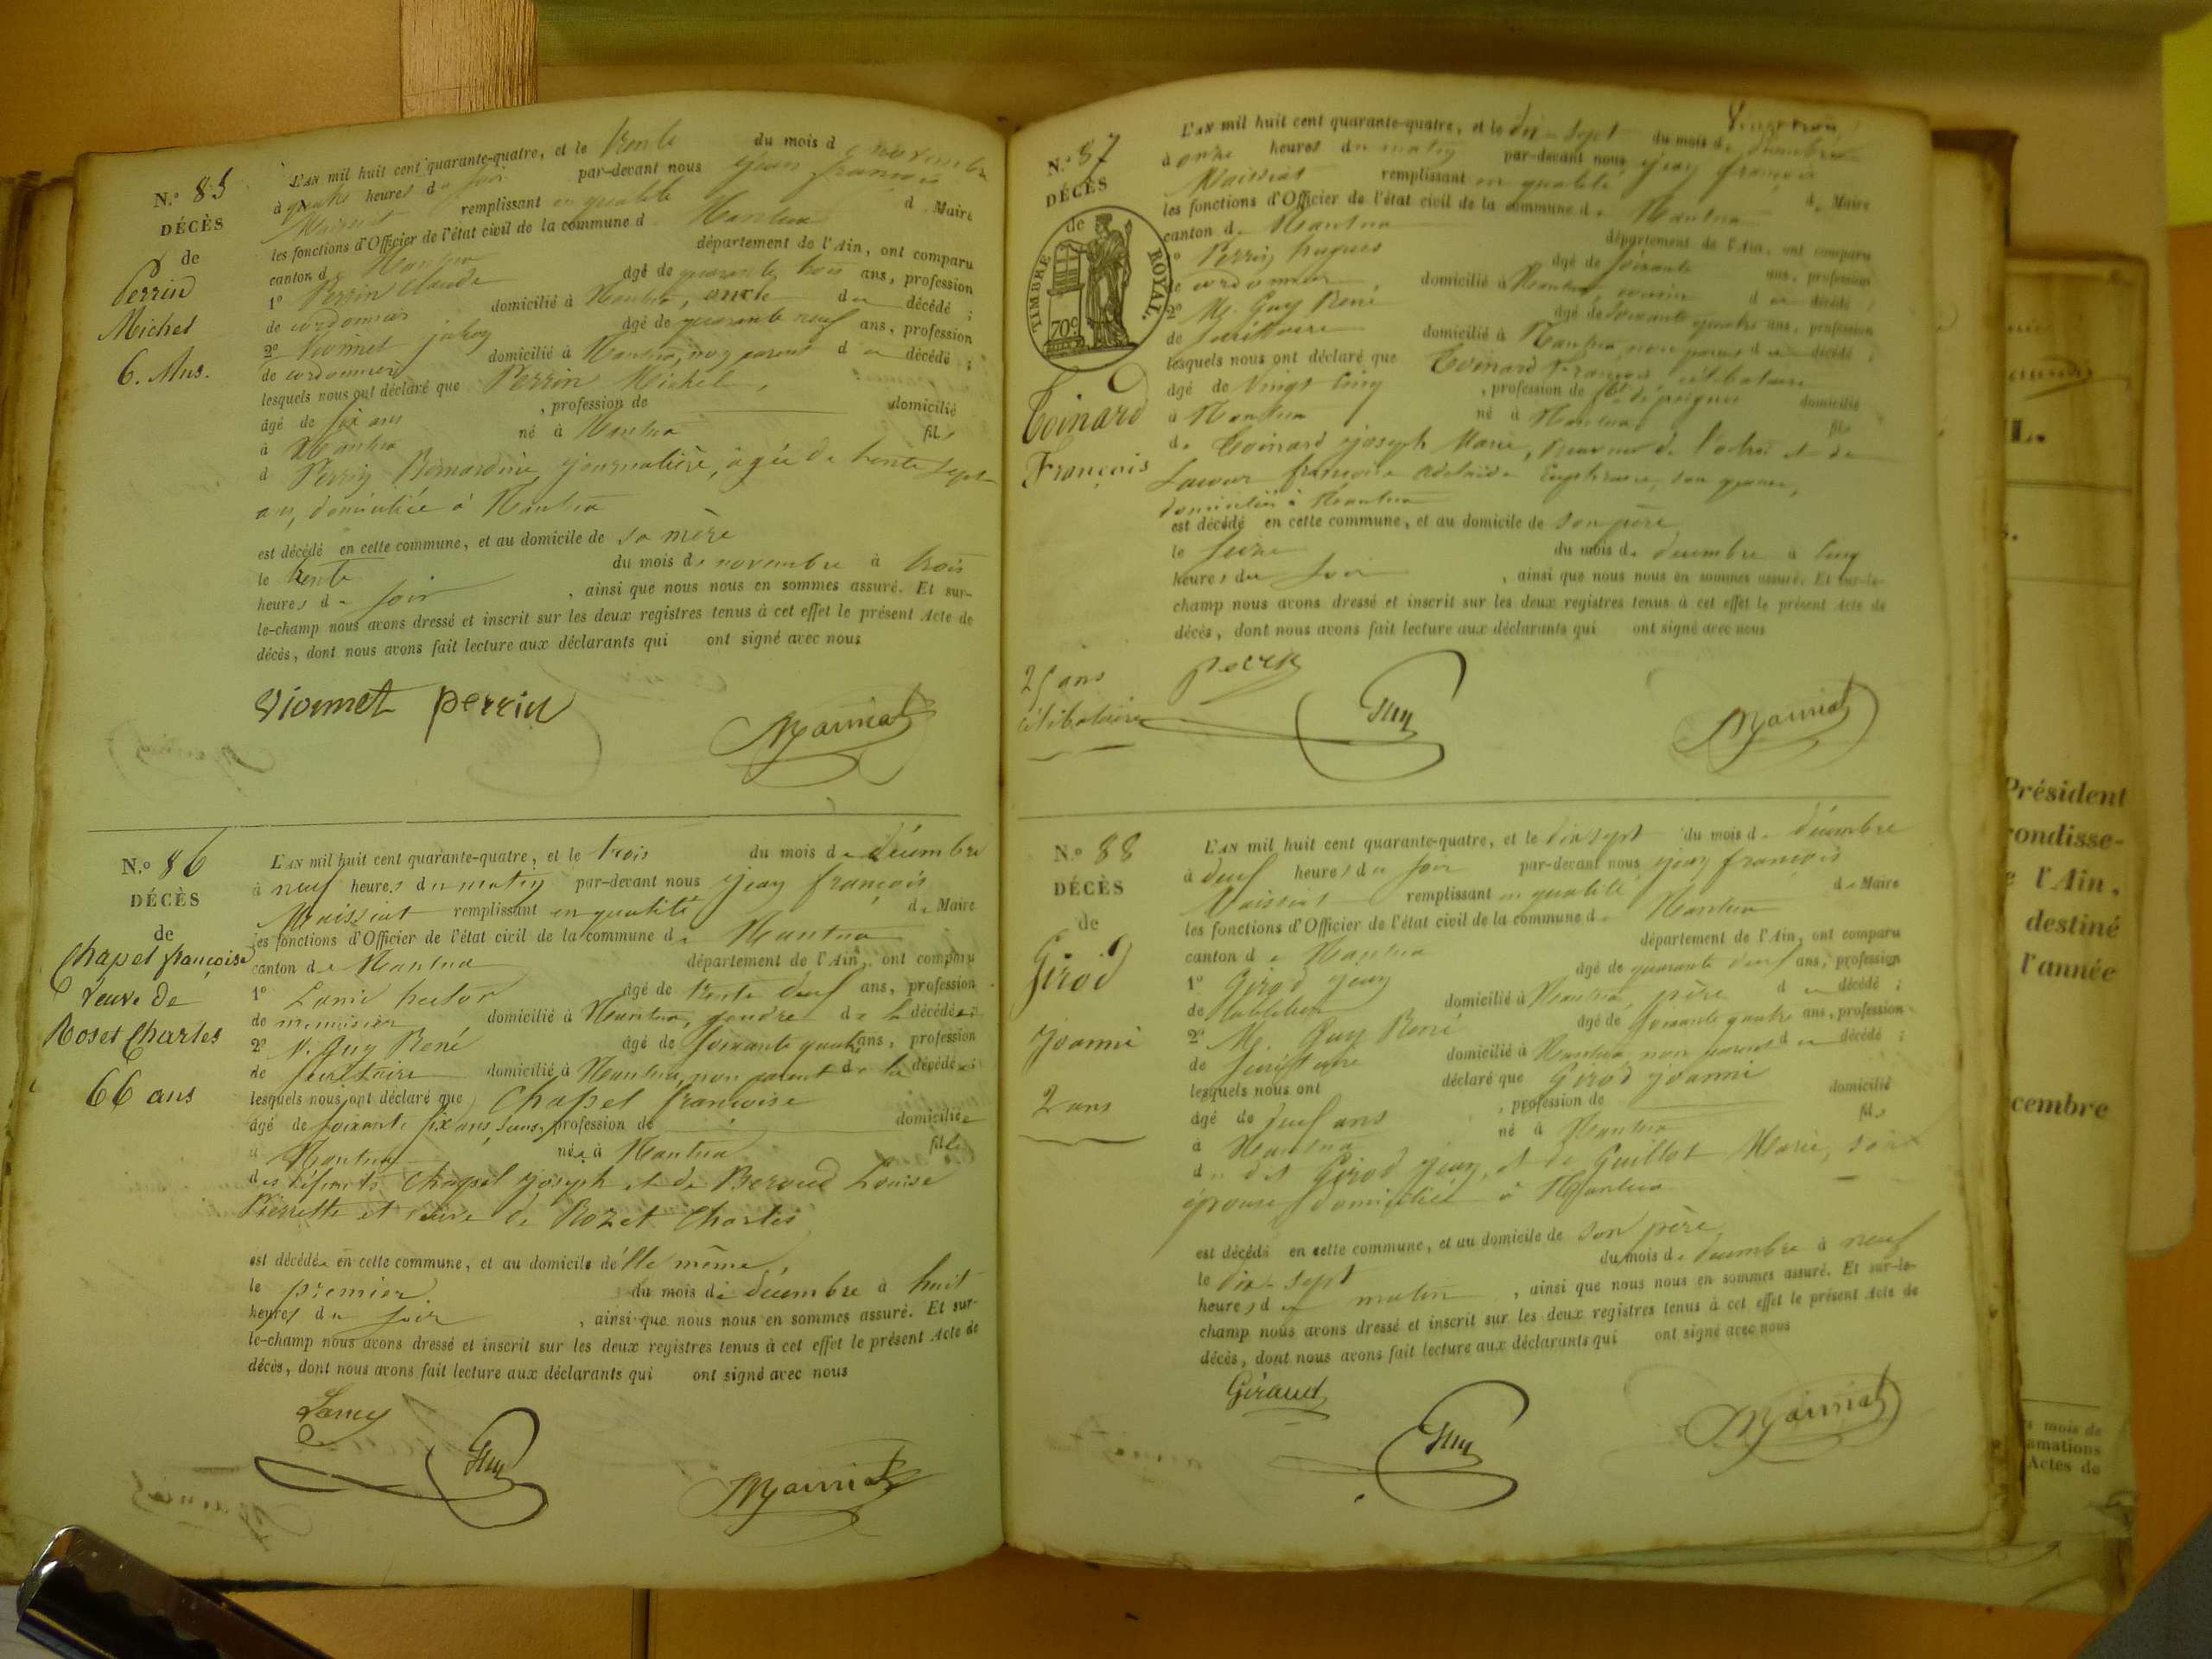 N.º 85
DÉCÈS
de
Perrin
Michel
6. Ans.
L'AN mil huit cent quarante-quatre, et le trente du mois de novembre
à quatre heures du soir par-devant nous jean françois
Maissiat remplissant en qualité de Maire
les fonctions d'Officier de l'état civil de la commune d Nantua
canton de Nantua département de l'Ain, ont comparu
1º Perrin Claude âgé de quarante trois ans, profession
de cordonnier domicilié à Nantua, oncle du décédé ;
2º Vionnet âgé de quarante neuf ans, profession
de cordonnier domicilié à Nantua, non parent du décédé ;
lesquels nous ont déclaré que Perrin Michel,
âgé de six ans , profession de domicilié
à Nantua né à Nantua fils
d Perrin Bernardine, journalière, agée de trente sept
ans, domiciliée à Nantua
est décédé en cette commune, et au domicile de sa mère
le trente du mois de novembre à trois
heures du soir , ainsi que nous nous en sommes assuré. Et sur-
le-champ nous avons dressé et inscrit sur les deux registres tenus à cet effet le présent Acte de
décès, dont nous avons fait lecture aux déclarants qui ont signé avec nous
Vionnet perrin Maissiat
N.º 86
DÉCÈS
de
Chapel françoise
veuve de
Roset Charles
66 ans
L'AN mil huit cent quarante-quatre, et le trois du mois de décembre
à neuf heures du matin par-devant nous jean françois
Maissiat remplissant en qualité de Maire
les fonctions d'Officier de l'état civil de la commune de Nantua
canton de Nantua département de l'Ain, ont comparu
1º Lami hector âgé de trente deux ans, profession
de menuisier domicilié à Nantua, gendre de la décédée ;
2º M. Guy René âgé de soixante quatre ans, profession
de secrétaire domicilié à Nantua, non parent de la décédée ;
lesquels nous ont déclaré que Chapel françoise
âgé de soixante six ans, sans profession de domiciliée
à Nantua née à Nantua fille
des défunts Chapel joseph et de Beroud Louise
Pierrette et veuve de Rozet Charles
est décédée en cette commune, et au domicile d'elle même,
le premier du mois de décembre à huit
heures du soir , ainsi que nous nous en sommes assuré. Et sur-
le-champ nous avons dressé et inscrit sur les deux registres tenus à cet effet le présent Acte de
décès, dont nous avons fait lecture aux déclarants qui ont signé avec nous
Lamy Guy Maissiat
N.º 87
DÉCÈS
de
TIMBRE ROYAL.
70c
Coinard
François
25 ans
célibataire
L'AN mil huit cent quarante-quatre, et le dix-sept du mois de décembre
à onze heures du matin par-devant nous jean françois
Maissiat remplissant en qualité de Maire
les fonctions d'Officier de l'état civil de la commune de Nantua
canton de Nantua département de l'Ain, ont comparu
1º Perrin hugues âgé de soixante ans, profession
de cordonnier, domicilié à Nantua, cousin du décédé ;
2º Mr. Guy René âgé de soixante quatre ans, profession
de secrétaire domicilié à Nantua, non parent du décédé ;
lesquels nous ont déclaré que Coinard François, célibataire
âgé de vingt cinq , profession de fbt. de peignes domicilié
à Nantua né à Nantua fils
de Coinard joseph Marie, receveur de l'octroi et de
françoise adelaïde son epouse,
domiciliés à Nantua
est décédé en cette commune, et au domicile de son père
le seize du mois de décembre à cinq
heures du soir , ainsi que nous nous en sommes assuré. Et sur-le-
champ nous avons dressé et inscrit sur les deux registres tenus à cet effet le présent Acte de
décès, dont nous avons fait lecture aux déclarants qui ont signé avec nous
perrin Guy Maissiat
N.º 88
DÉCÈS
de
Girod
joanni
2 ans
L'AN mil huit cent quarante-quatre, et le dix sept du mois de décembre
à deux heures du soir par-devant nous jean françois
Maissiat remplissant en qualité de Maire
les fonctions d'Officier de l'état civil de la commune de Nantua
canton de Nantua département de l'Ain, ont comparu
1º Girod jean âgé de quarante deux ans, profession
de domicilié à Nantua, père du décédé ;
2º Mr. Guy René âgé de soixante quatre ans, profession
de secrétaire domicilié à Nantua non parent du décédé ;
lesquels nous ont déclaré que Girod joanni
âgé de deux ans , profession de domicilié
à Nantua né à Nantua fils
du dit Girod jean, et de Guillot Marie, son
épouse, domiciliés à Nantua
est décédé en cette commune, et au domicile de son père
le dix-sept du mois de décembre à neuf
heures du matin , ainsi que nous nous en sommes assuré. Et sur-le-
champ nous avons dressé et inscrit sur les deux registres tenus à cet effet le présent Acte de
décès, dont nous avons fait lecture aux déclarants qui ont signé avec nous
Giraud Guy Maissiat
Président
rondisse-
l'Ain,
destiné
l'année
cembre
mois de
Actes de